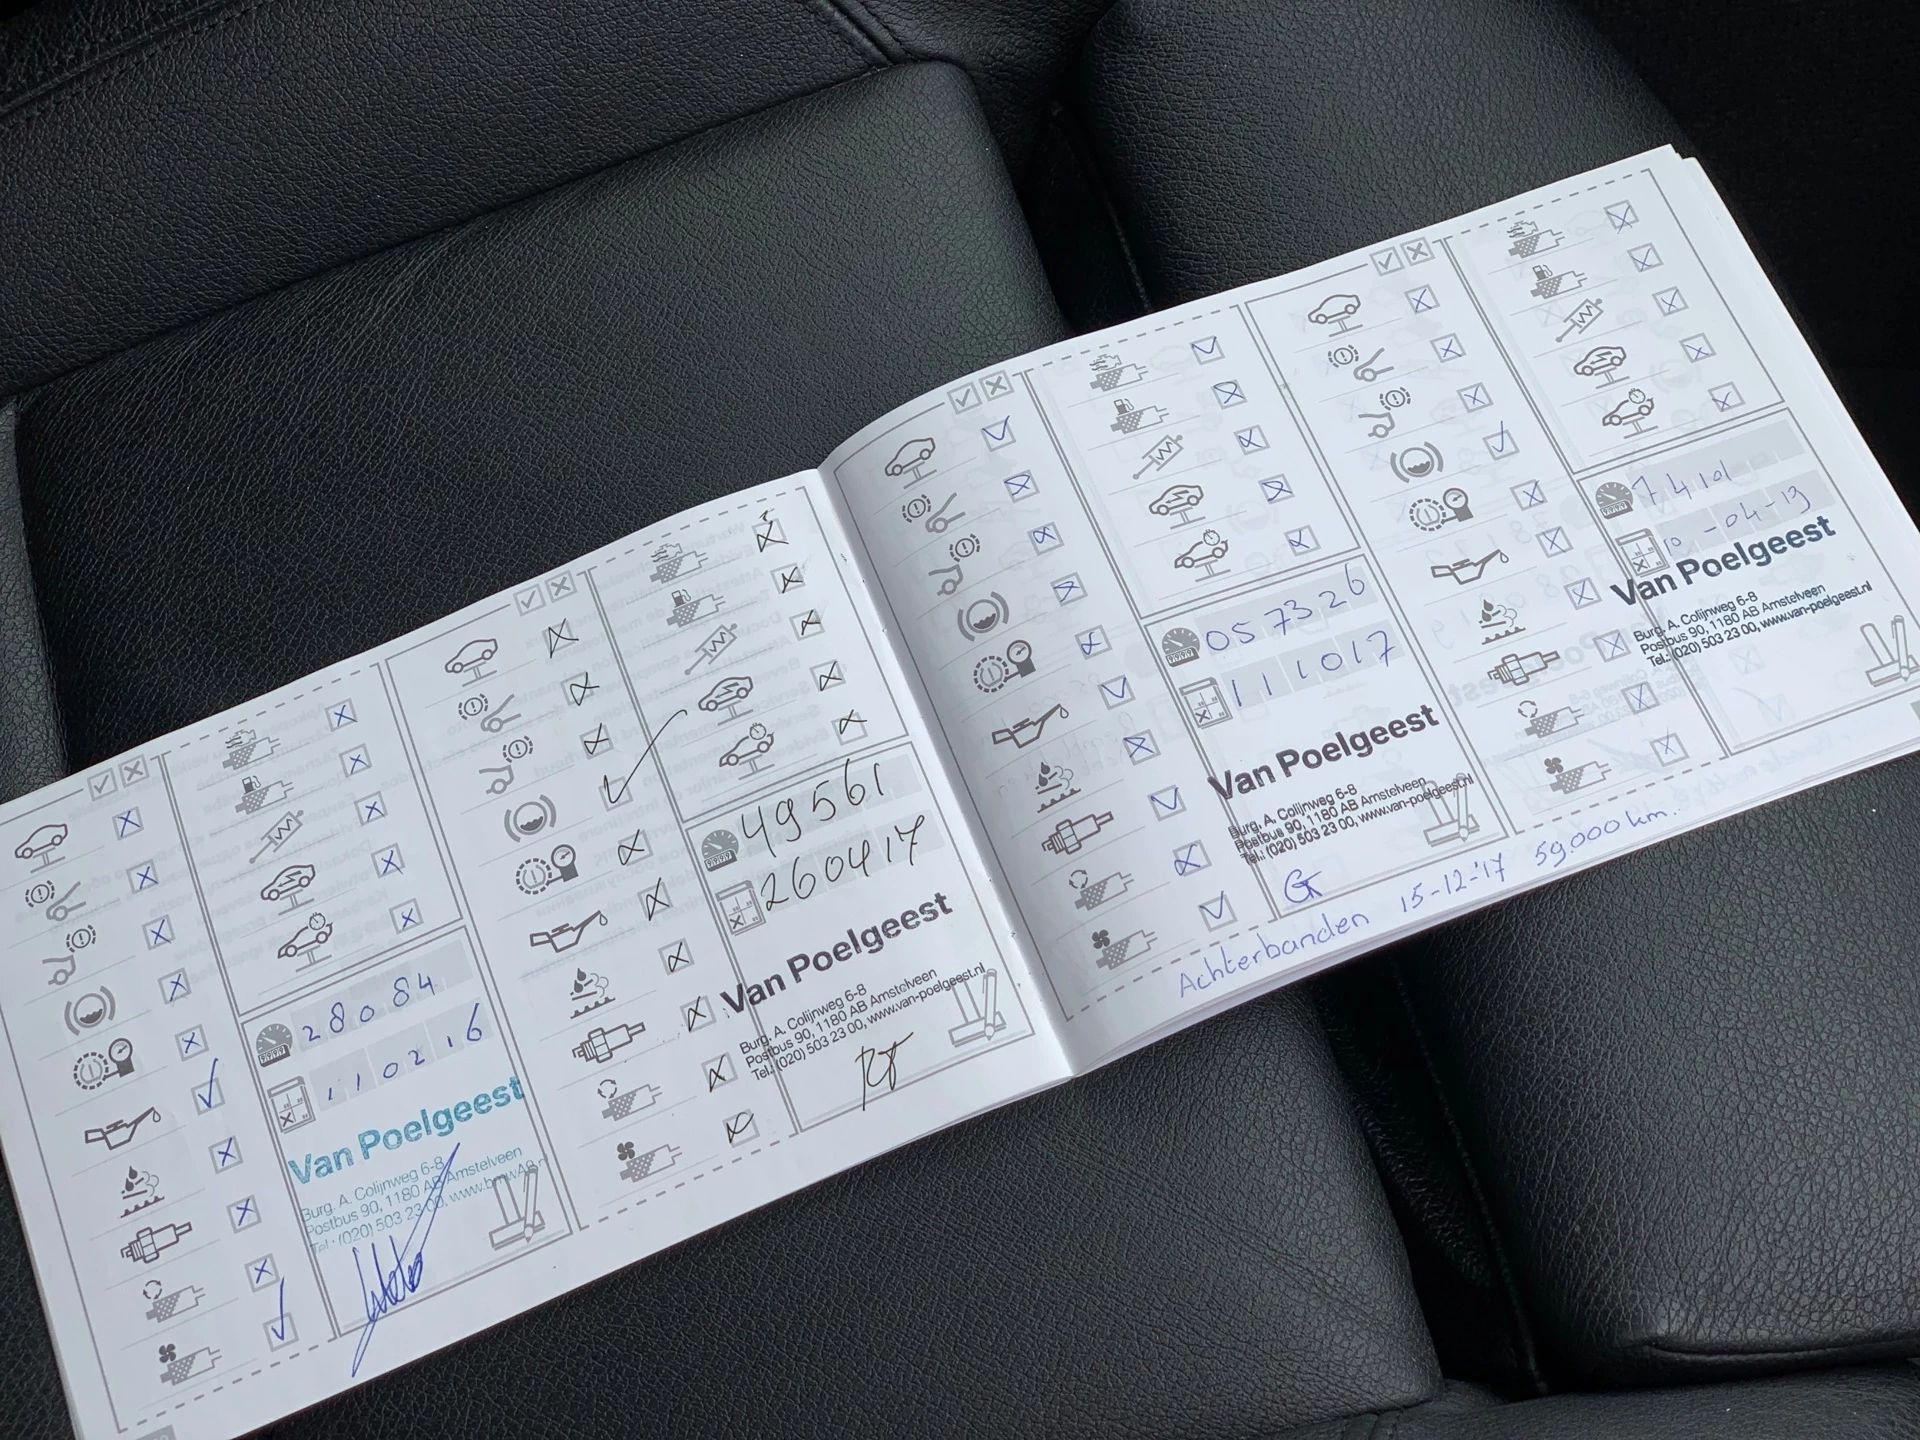 28084
110216
Van Poelgeest
Burg. A. Colijnweg 6-8
Postbus 90, 1180 AB Amstelveen
Tel.: (020) 503 23 00,
49561
260417
Van Poelgeest
Burg. A. Colijnweg 6-8
Postbus 90, 1180 AB Amstelveen
Tel.: (020) 503 23 00, www.van-poelgeest.nl
057326
111017
Van Poelgeest
Burg. A. Colijnweg 6-8
Postbus 90, 1180 AB Amstelveen
Tel.: (020) 503 23 00, www.van-poelgeest.nl
Achterbanden 15-12-'17 59.000 km.
7410
10-04-19
Van Poelgeest
Burg. A. Colijnweg 6-8
Postbus 90, 1180 AB Amstelveen
Tel.: (020) 503 23 00, www.van-poelgeest.nl